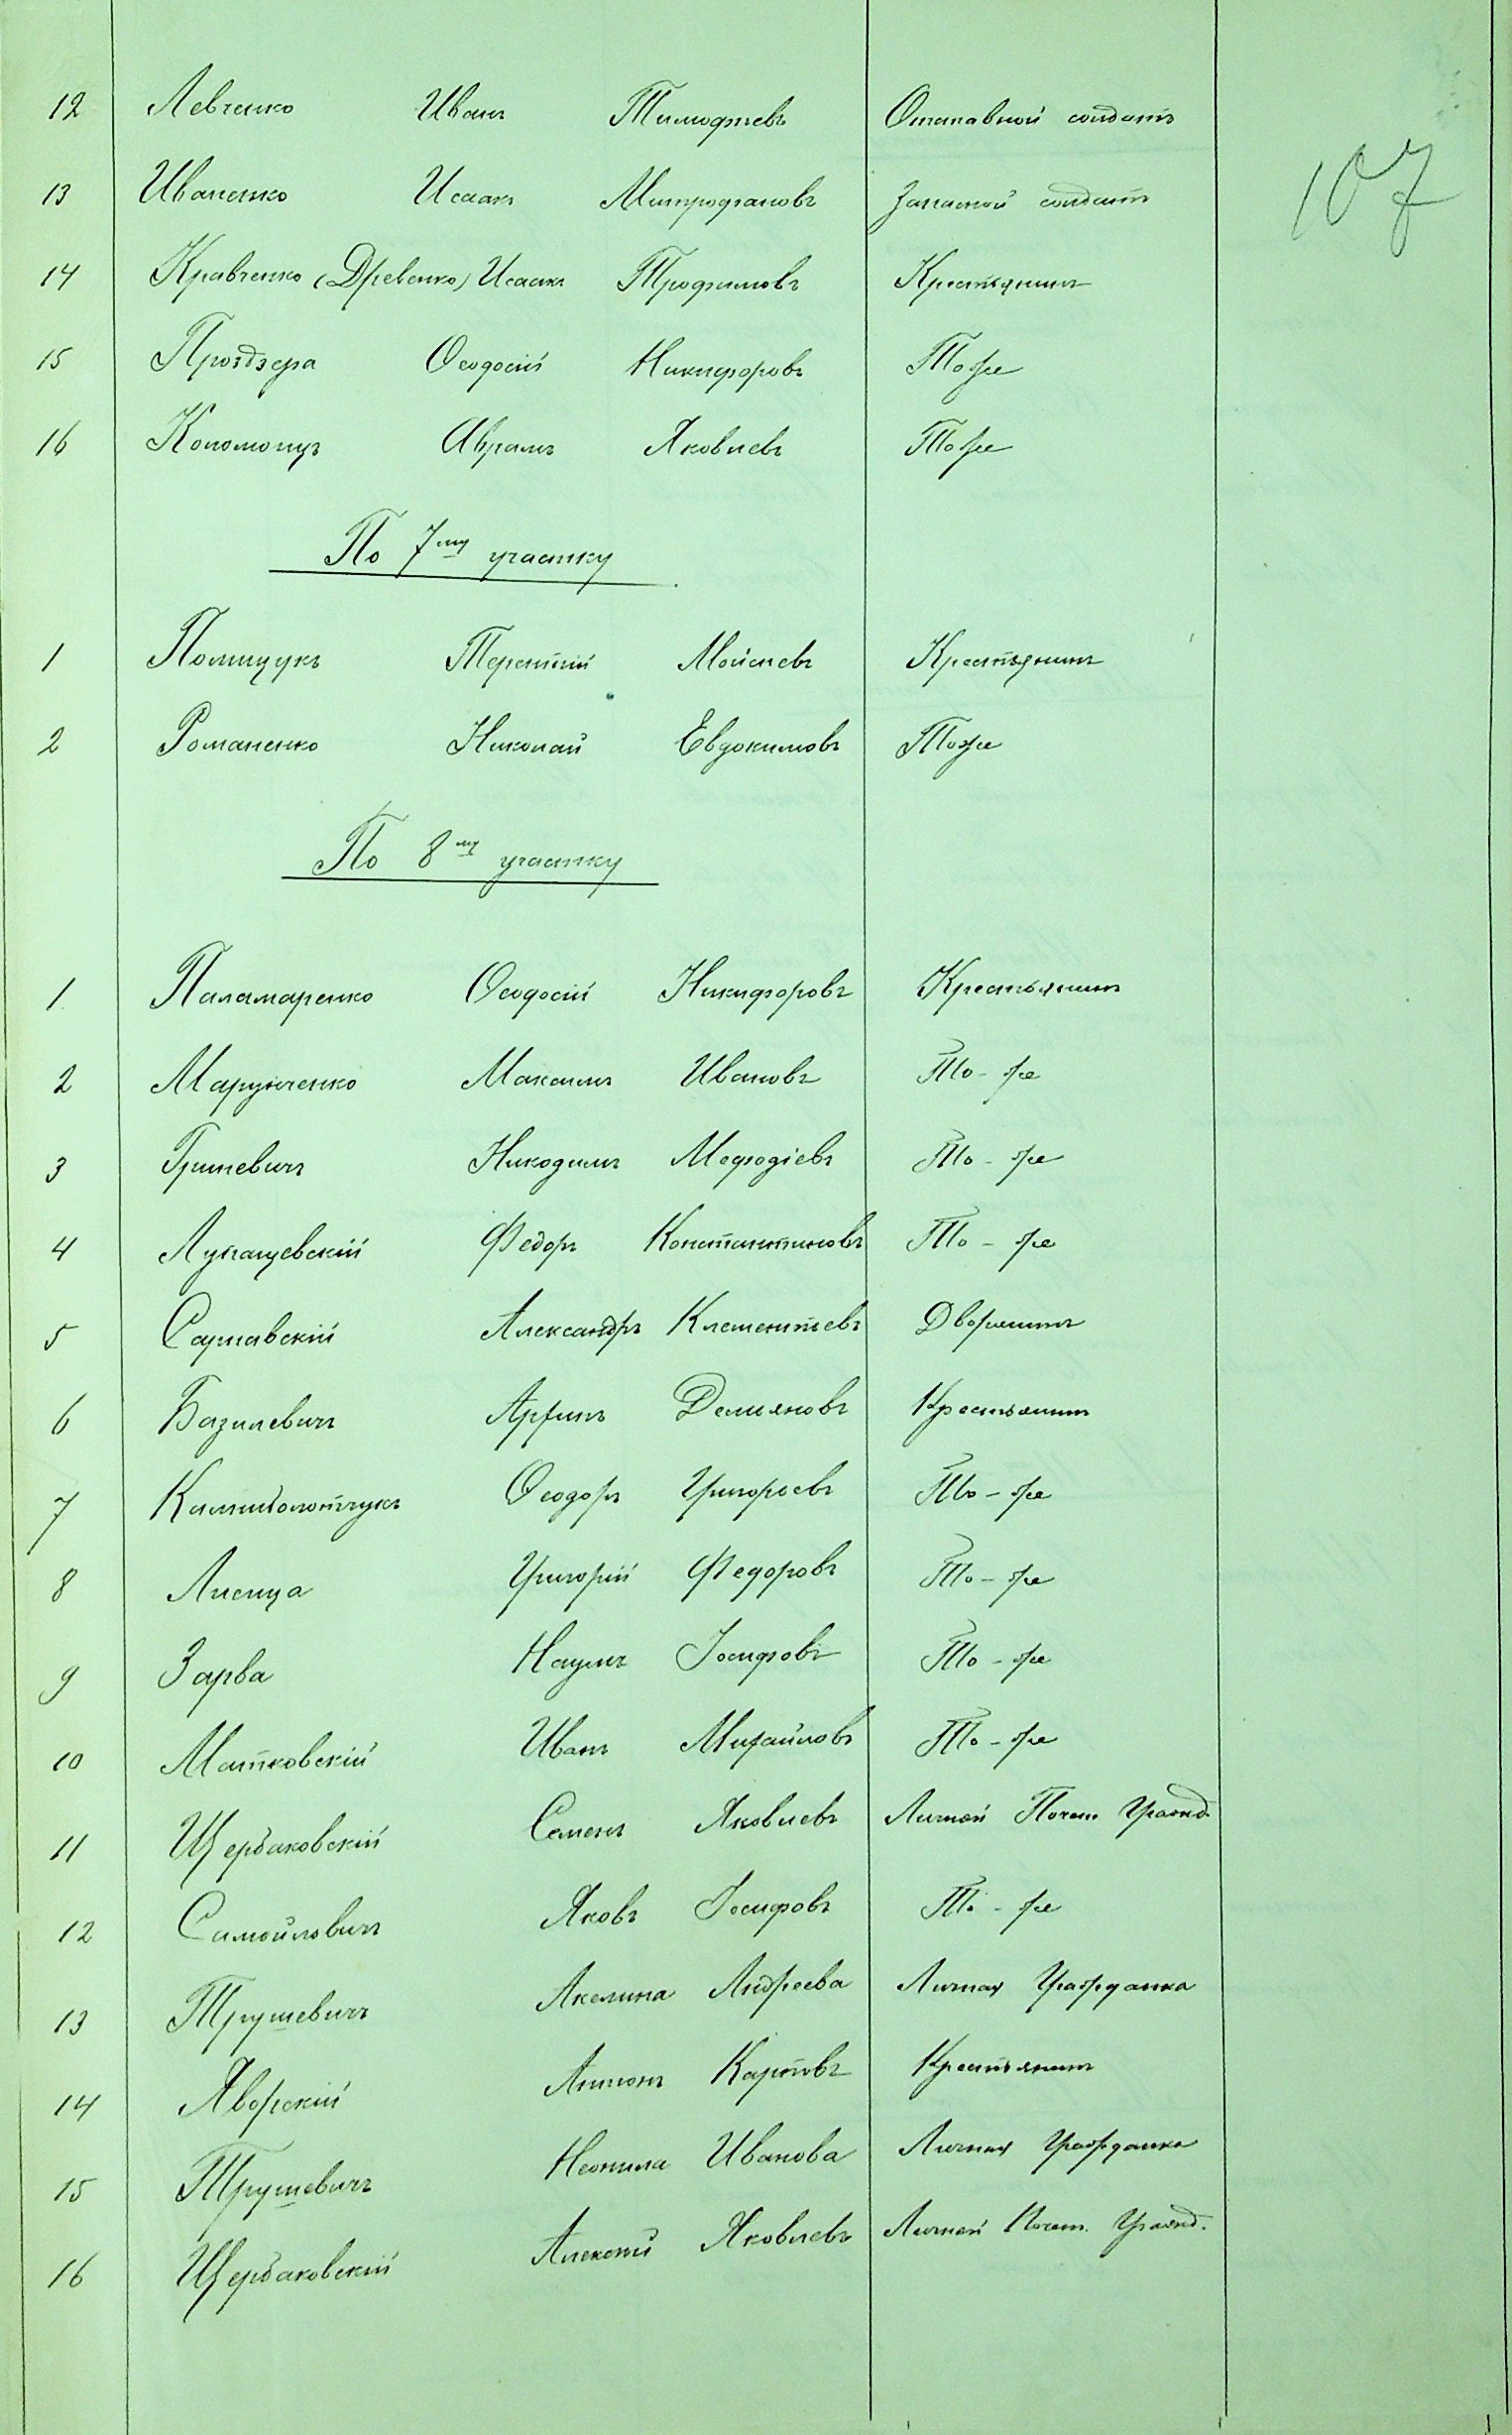 107
12 Левченко Иванъ Тимофѣевъ Отставной солдатъ
13 Иваненко Исаакъ Митрофановъ Запасной солдатъ
14 Кравченко (Древенко) Исаакъ Трофимовъ Крестьянинъ
15 Ѳеодосій Никифоровъ Тоже
16 Коломіецъ Аврамъ Яковлевъ Тоже
По 7му участку
1 Полищукъ Терентій Мойсеевъ Крестьянинъ
2 Романенко Николай Евдокимовъ Тоже
По 8му участку
1 Паламаренко Ѳеодосій Никифоровъ Крестьянинъ
2 Марунченко Максимъ Ивановъ То-же
3 Гриневичъ Никодимъ Мефодіевъ То-же
4 Лукашевскій Федоръ Константиновъ То-же
5 Александръ Клементіевъ Дворянинъ
6 Базилевичъ Демьяновъ Крестьянинъ
7 Ѳеодоръ Григорьевъ То-же
8 Лисица Григорій Федоровъ То-же
9 Зарва Наумъ Іосифовъ То-же
10 Матковскій Иванъ Михайловъ То-же
11 Щербаковскій Семенъ Яковлевъ Личной Почет. Гражд.
12 Самойловичъ Яковъ Іосифовъ То-же
13 Трушевичъ Акелина Андреева Личная Гражданка
14 Яворскій Антонъ Карповъ Крестьянинъ
15 Трушевичъ Неонила Иванова Личная Гражданка
16 Щербаковскій Алексѣй Яковлевъ Личной Почет. Гражд.